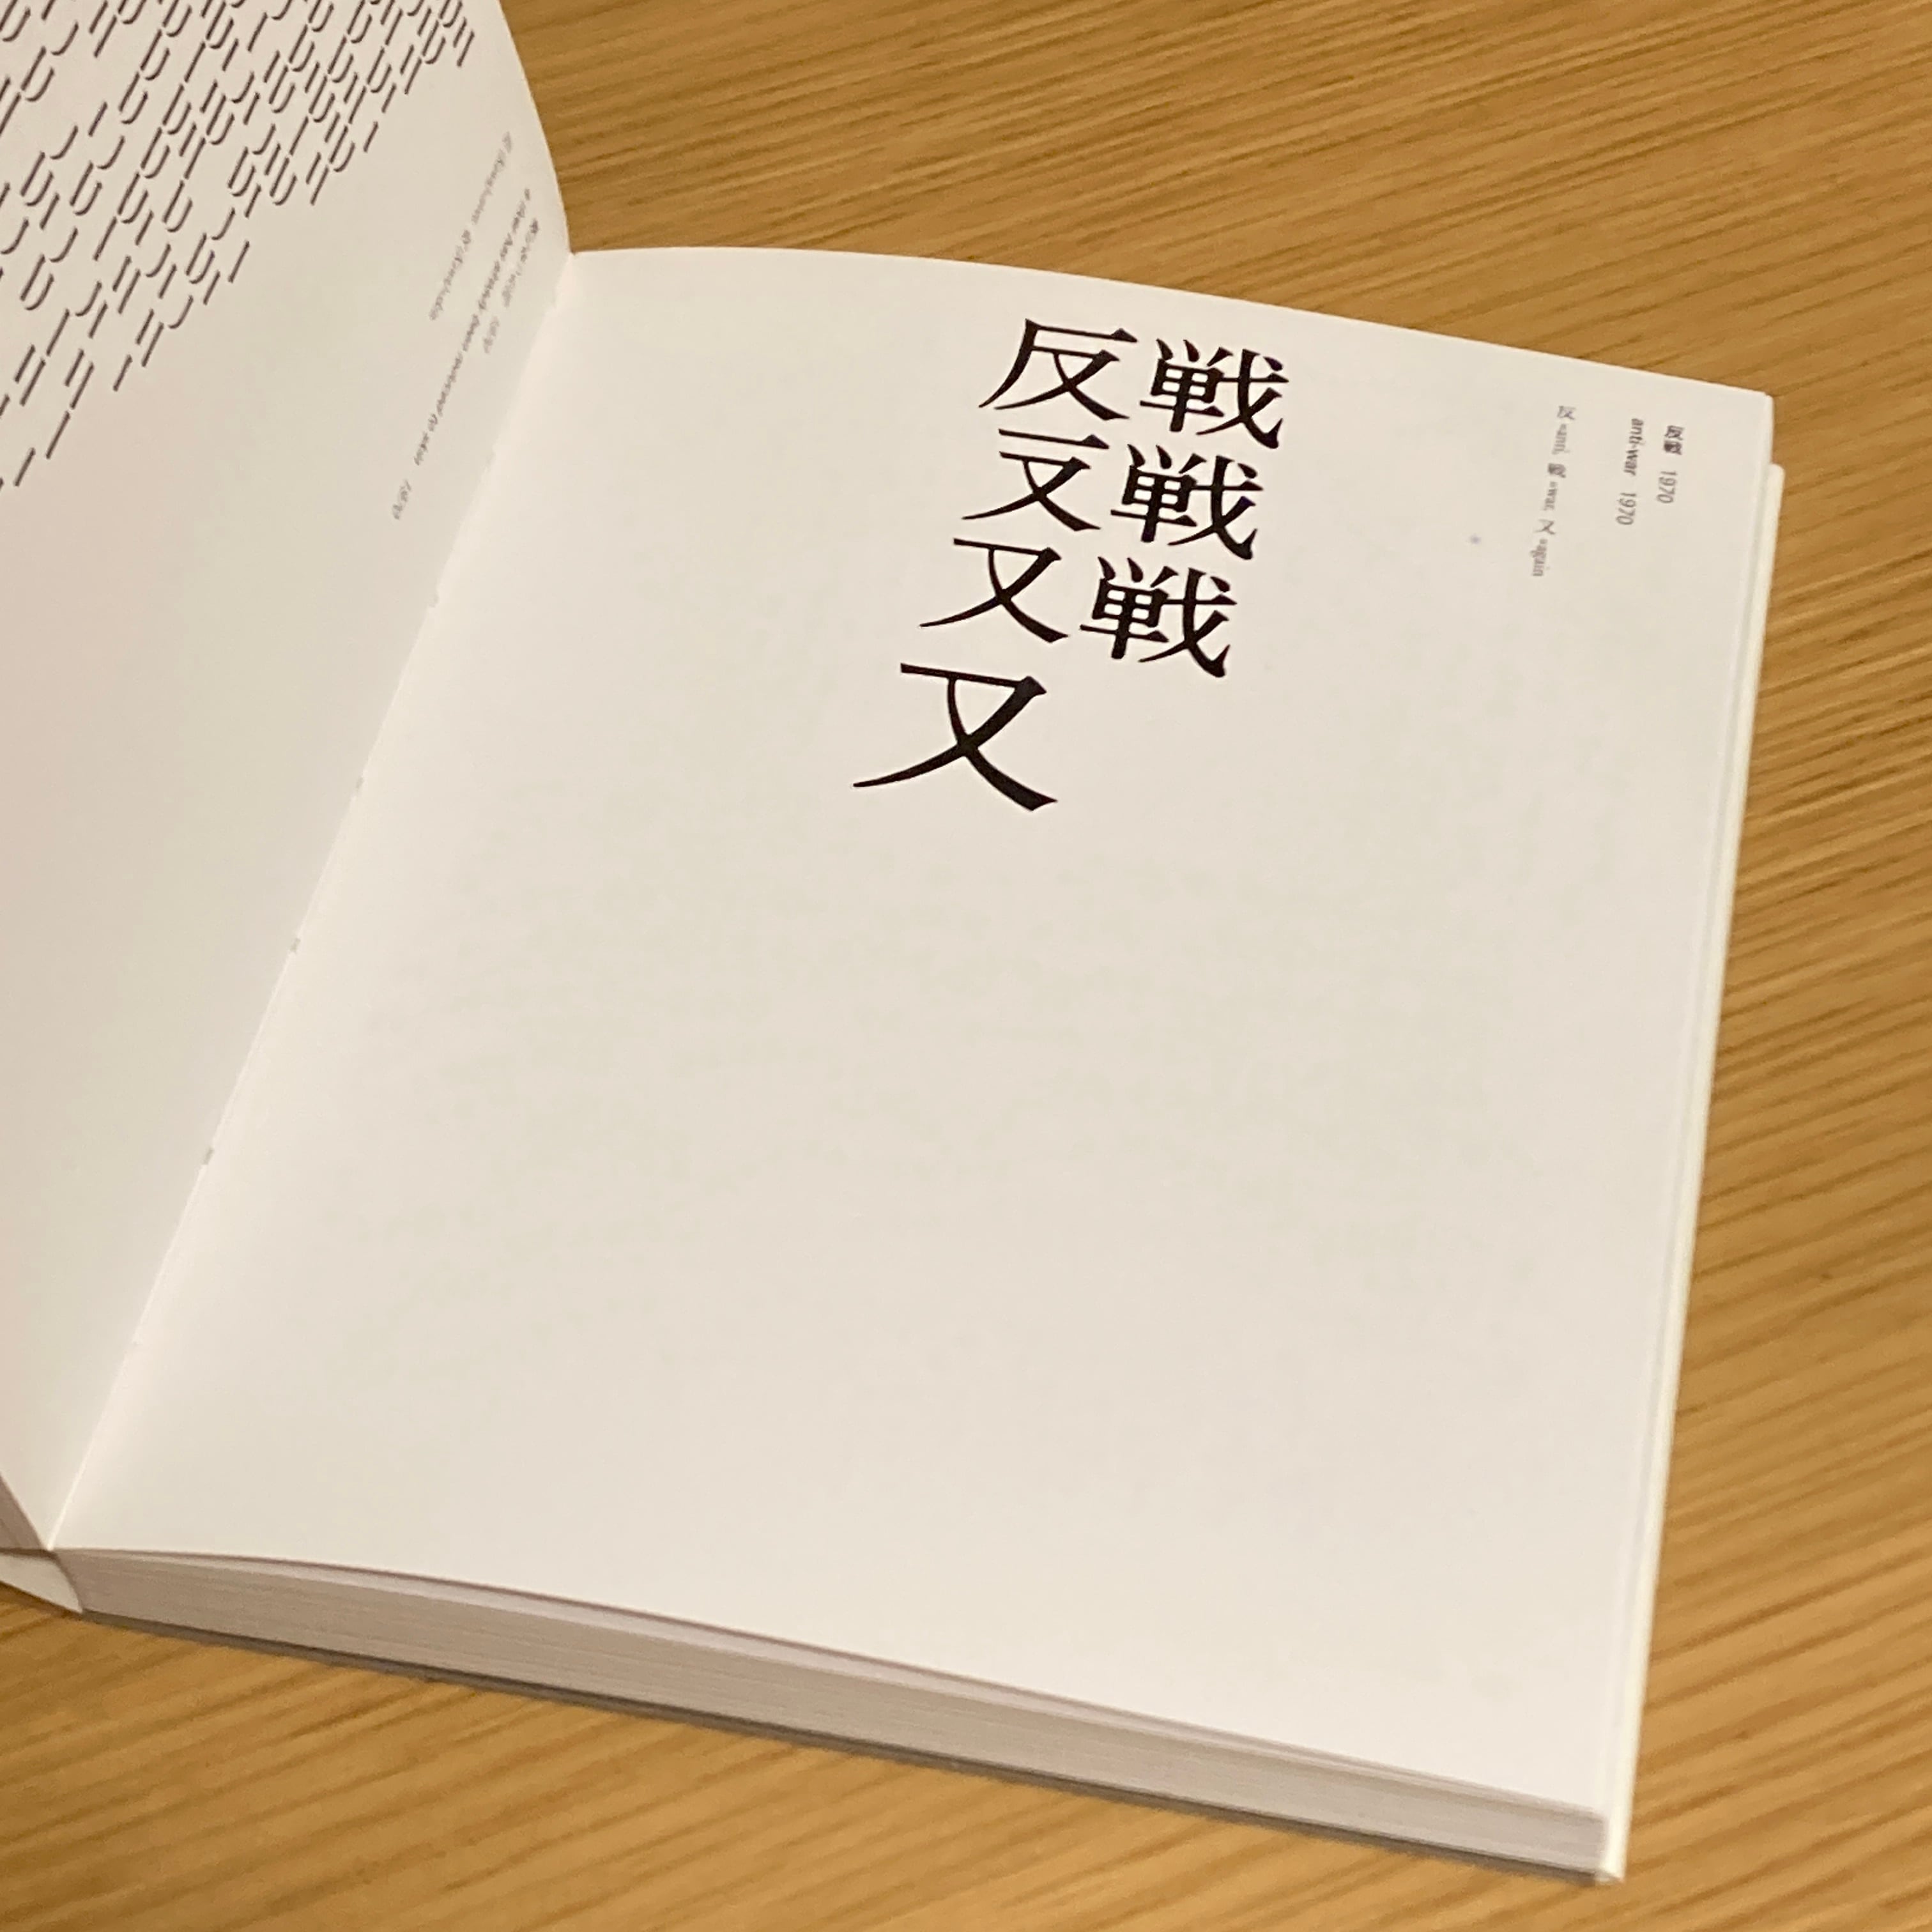 反戦
反戦
又戦
又
反戦 1970
anti-war 1970
反=anti, 戦=war, 又=again